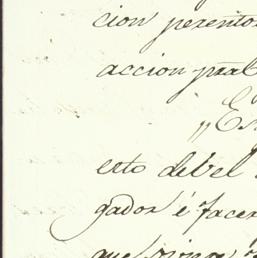 cion perento
accion pral
"Es
esto debel
gador é facer
que